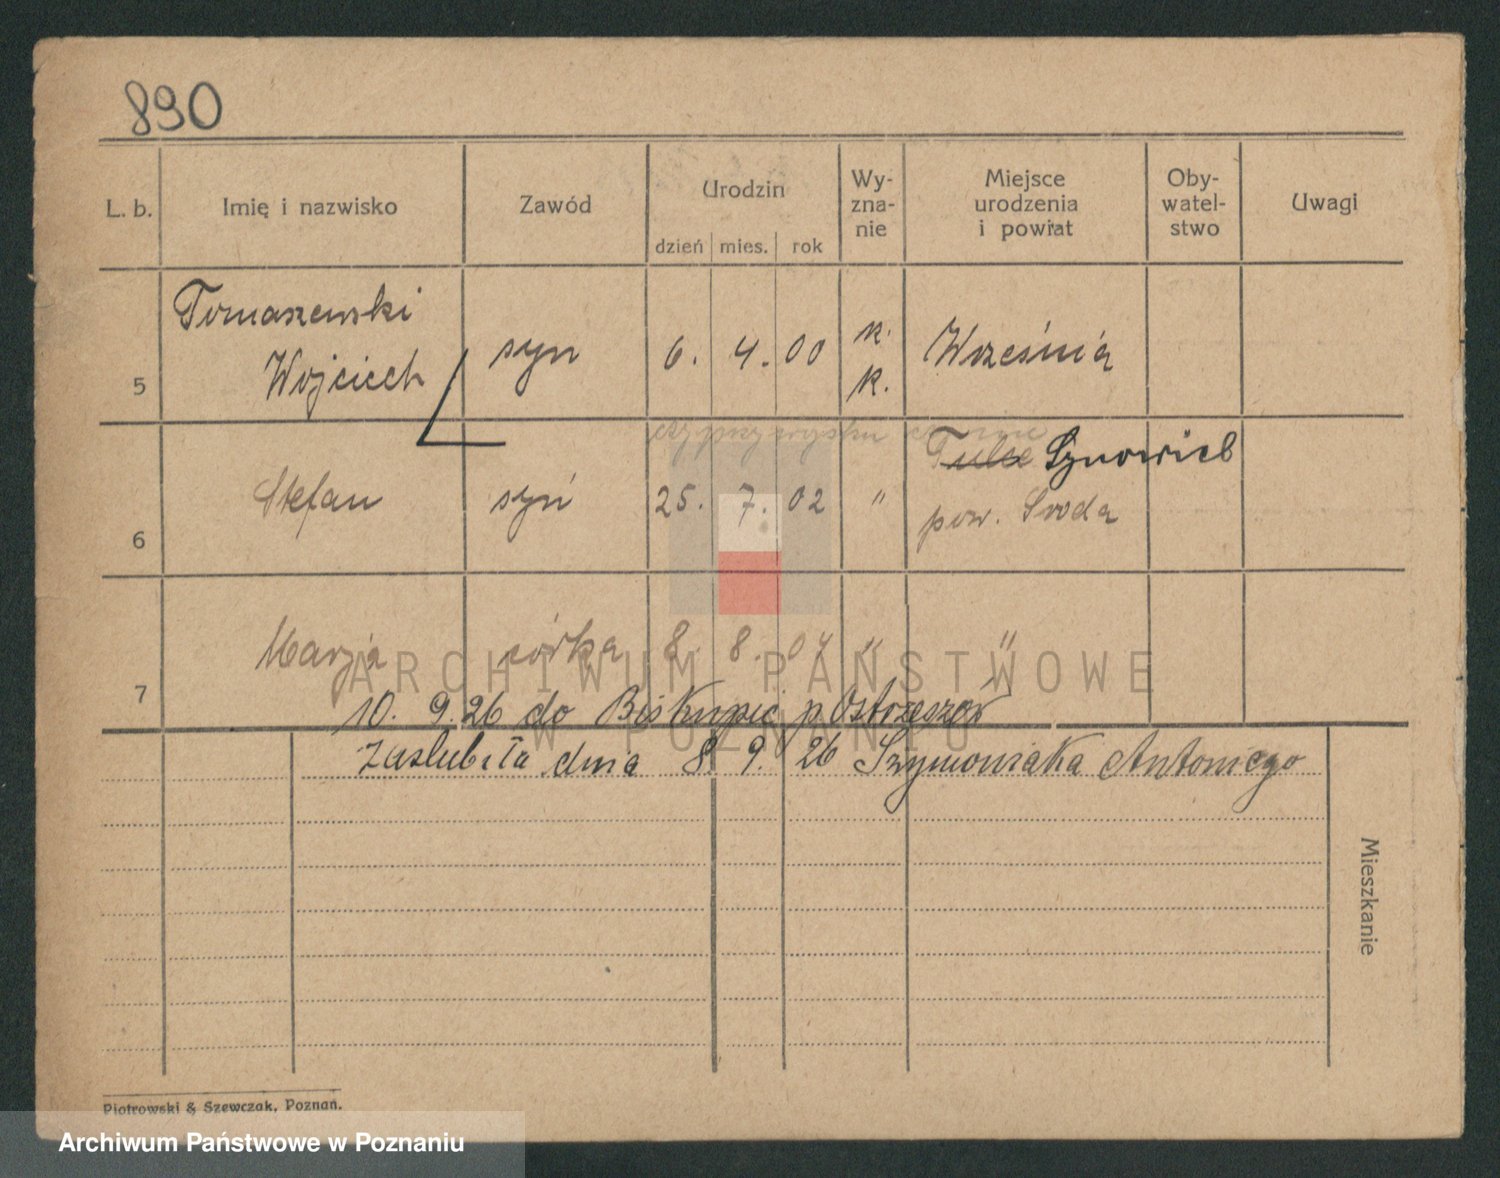 890
L. b. Imię i nazwisko Zawód Urodzin dzień mies. rok Wy-zna-nie Miejsce urodzenia i powiat Oby-watel-stwo Uwagi
Tomaszewski
5 Wojciech syn 6. 4. 00 k. k. Września
Tulce Synowiel
6 Stefan syn 25. 7. 02 " pow. Środa
7 Marja córka 8. 8. 04 " "
10. 9. 26 do Biskupic p. Ostrzeszów
Zaslubiła dnia 8. 9. 26 Szymoniaka Antoniego
Mieszkanie
ARCHIWUM PAŃSTWOWE
W POZNANIU
Piotrowski & Szewczak, Poznań.
Archiwum Państwowe w Poznaniu